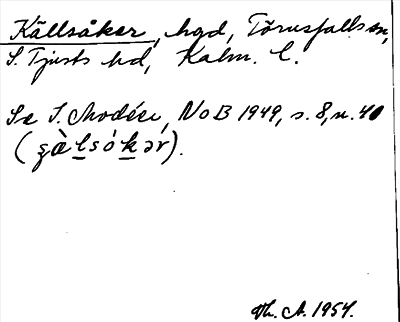 Källsåker, hgd, Törnsfalls sn,
S. Tjusts hd, Kalm. l.
Se I. Modéer, NoB 1949, s. 8, n. 40
(ȿàlsókər).
Th. A. 1954.